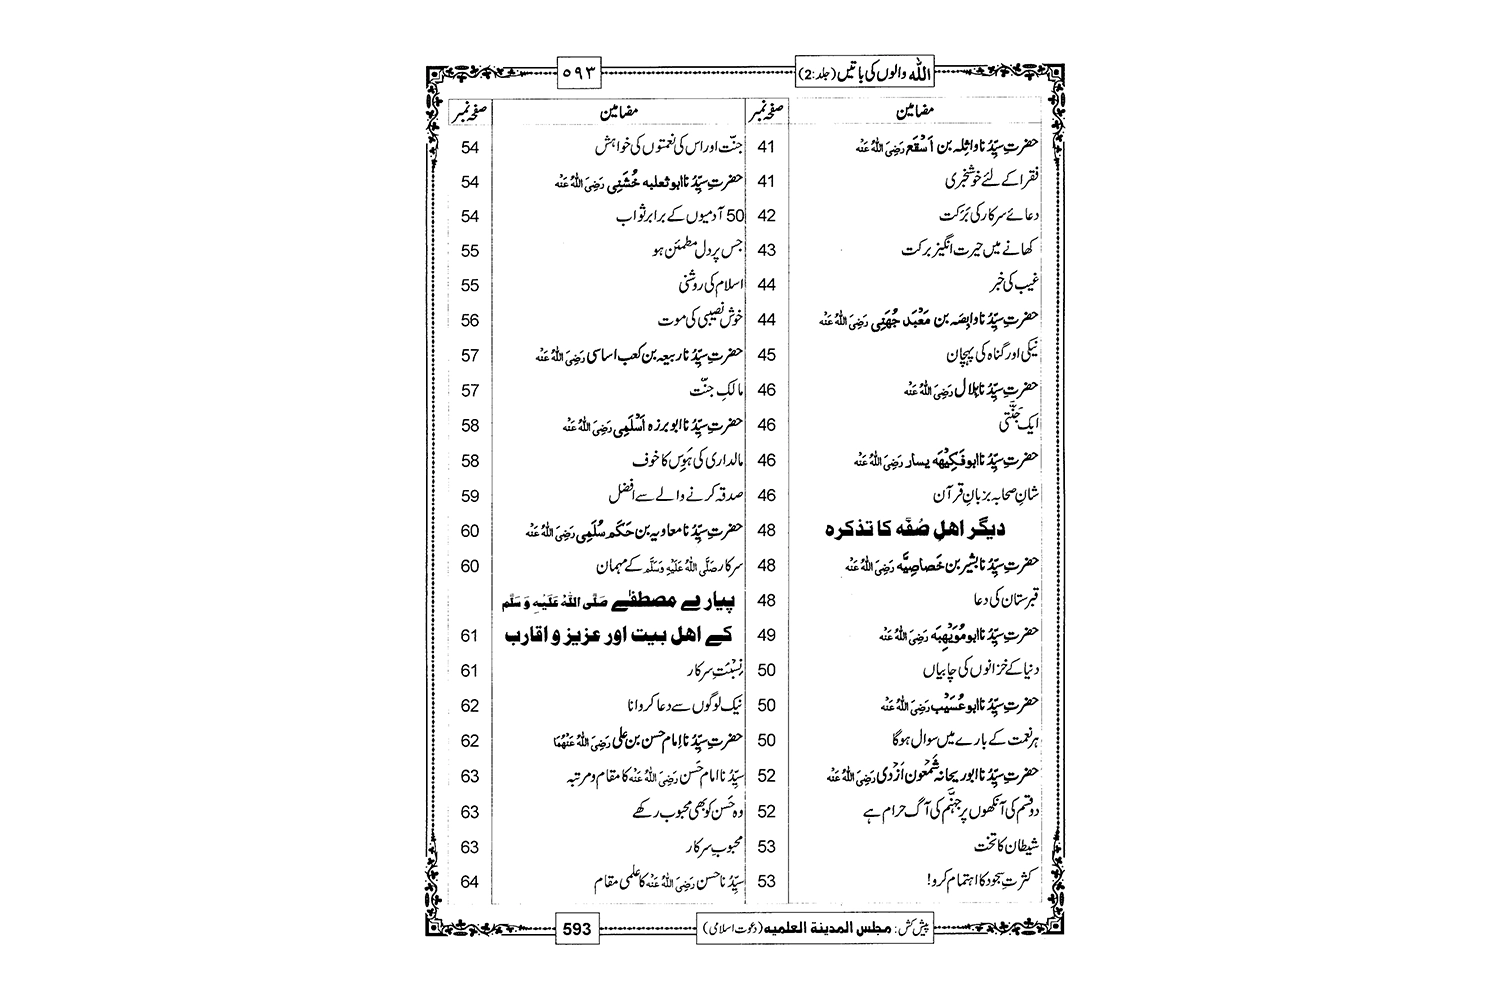 اللہ والوں کی باتیں (جلد:2)
٥٩٣
مضامین صفحہ نمبر
حضرتِ سیِّدُنا واثِلہ بن اَسْقَع رَضِیَ اللہُ عَنْہ 41
فقرا کے لئے خوشخبری 41
دعائے سرکار کی بَرَکت 42
کھانے میں حیرت انگیز برکت 43
غیب کی خبر 44
حضرتِ سیِّدُنا وابِصَہ بن مَعْبَد جُہَنِی رَضِیَ اللہُ عَنْہ 44
نیکی اور گناہ کی پہچان 45
حضرتِ سیِّدُنا ہلال رَضِیَ اللہُ عَنْہ 46
ایک جَنَّتی 46
حضرتِ سیِّدُنا ابو فَکِیْھَہ یسار رَضِیَ اللہُ عَنْہ 46
شانِ صحابہ بزبانِ قرآن 46
دیگر اھلِ صُفّہ کا تذکرہ 48
حضرتِ سیِّدُنا بشیر بن خَصاصِیَّہ رَضِیَ اللہُ عَنْہ 48
قبرستان کی دعا 48
حضرتِ سیِّدُنا ابو مُوَیْھِبَہ رَضِیَ اللہُ عَنْہ 49
دنیا کے خزانوں کی چابیاں 50
حضرتِ سیِّدُنا ابو عُسَیْب رَضِیَ اللہُ عَنْہ 50
ہر نعمت کے بارے میں سوال ہوگا 50
حضرتِ سیِّدُنا ابو ریحانہ شَمْعُون اَزْدی رَضِیَ اللہُ عَنْہ 52
دو قسم کی آنکھوں پر جہنَّم کی آگ حرام ہے 52
شیطان کا تخت 53
کثرتِ سجود کا اہتمام کرو! 53
مضامین صفحہ نمبر
جنّت اور اس کی نعمتوں کی خواہش 54
حضرتِ سیِّدُنا ابو ثعلبہ خُشَنِی رَضِیَ اللہُ عَنْہ 54
50 آدمیوں کے برابر ثواب 54
جس پر دل مطمئن ہو 55
اسلام کی روشنی 55
خوش نصیبی کی موت 56
حضرتِ سیِّدُنا ربیعہ بن کعب اساسی رَضِیَ اللہُ عَنْہ 57
مالکِ جنّت 57
حضرتِ سیِّدُنا ابو برزہ اَسْلَمِی رَضِیَ اللہُ عَنْہ 58
مالداری کی ہَوَس کا خوف 58
صدقہ کرنے والے سے افضل 59
حضرتِ سیِّدُنا معاویہ بن حَکَم سُلَمِی رَضِیَ اللہُ عَنْہ 60
سرکار صَلَّی اللہُ عَلَیْہِ وَسَلَّم کے مہمان 60
پیارے مصطفٰے صَلَّی اللہُ عَلَیْہِ وَسَلَّم
کے اھل بیت اور عزیز و اقارب 61
نِسْبَتِ سرکار 61
نیک لوگوں سے دعا کروانا 62
حضرتِ سیِّدُنا امام حسن بن علی رَضِیَ اللہُ عَنْہُمَا 62
سیِّدُنا امام حَسَن رَضِیَ اللہُ عَنْہ کا مقام و مرتبہ 63
وہ حَسَن کو بھی محبوب رکھے 63
محبوبِ سرکار 63
سیِّدُنا حسن رَضِیَ اللہُ عَنْہ کا علمی مقام 64
پیش کش: مجلس المدینۃ العلمیہ (دعوت اسلامی)
593